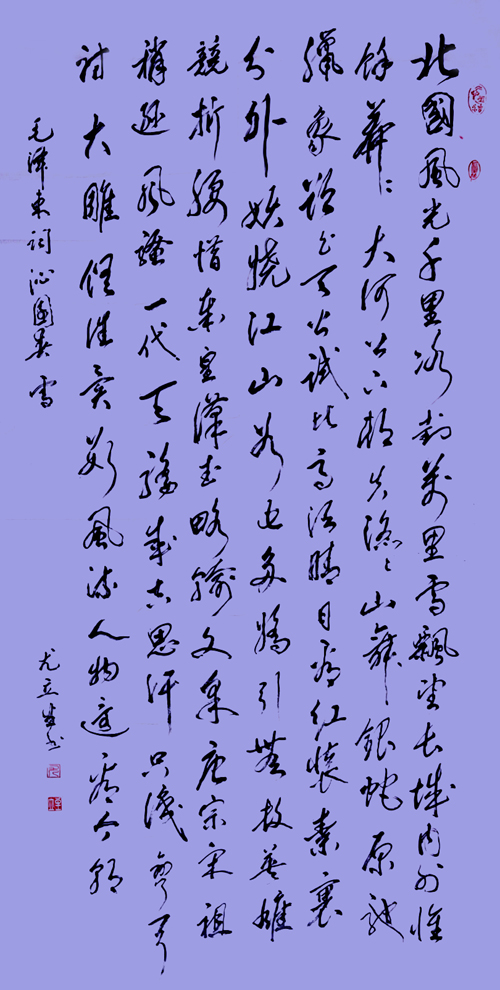 北國風光千里冰封萬里雪飄望長城内外惟
餘莽々大河上下頓失滔々山舞銀蛇原馳
臘象欲与天公試比高須晴日看紅裝素裹
分外妖嬈江山如此多嬌引無數英雄
競折腰惜秦皇漢武略輸文采唐宗宋祖
稍遜風騷一代天驕成吉思汗只識彎弓
射大雕俱往矣數風流人物還看今朝
毛澤東詞沁園春雪
尤立